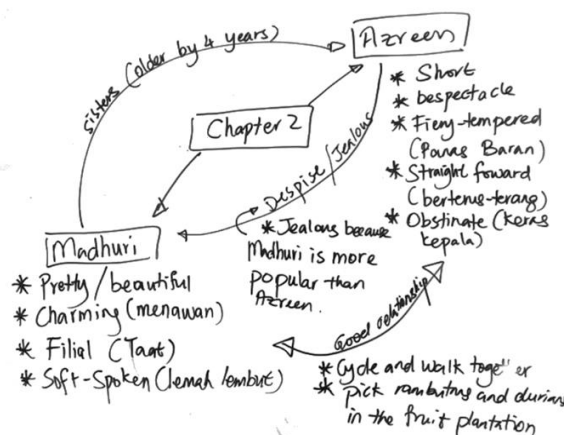 sisters (older by 4 years)
Azreen
* Short
* bespectacle
* Fiery-tempered
(Panas Baran)
* Straight foward
(berterus-terang)
* Obstinate (keras
kepala)
Chapter 2
Despise/Jealous
* Jealous because
Madhuri is more
popular than
Azreen.
Madhuri
* Pretty/beautiful
* Charming (menawan)
* Filial (Taat)
* Soft-Spoken (lemah lembut)
Good relationship
* Cycle and walk together
* pick rambutans and durians
in the fruit plantation